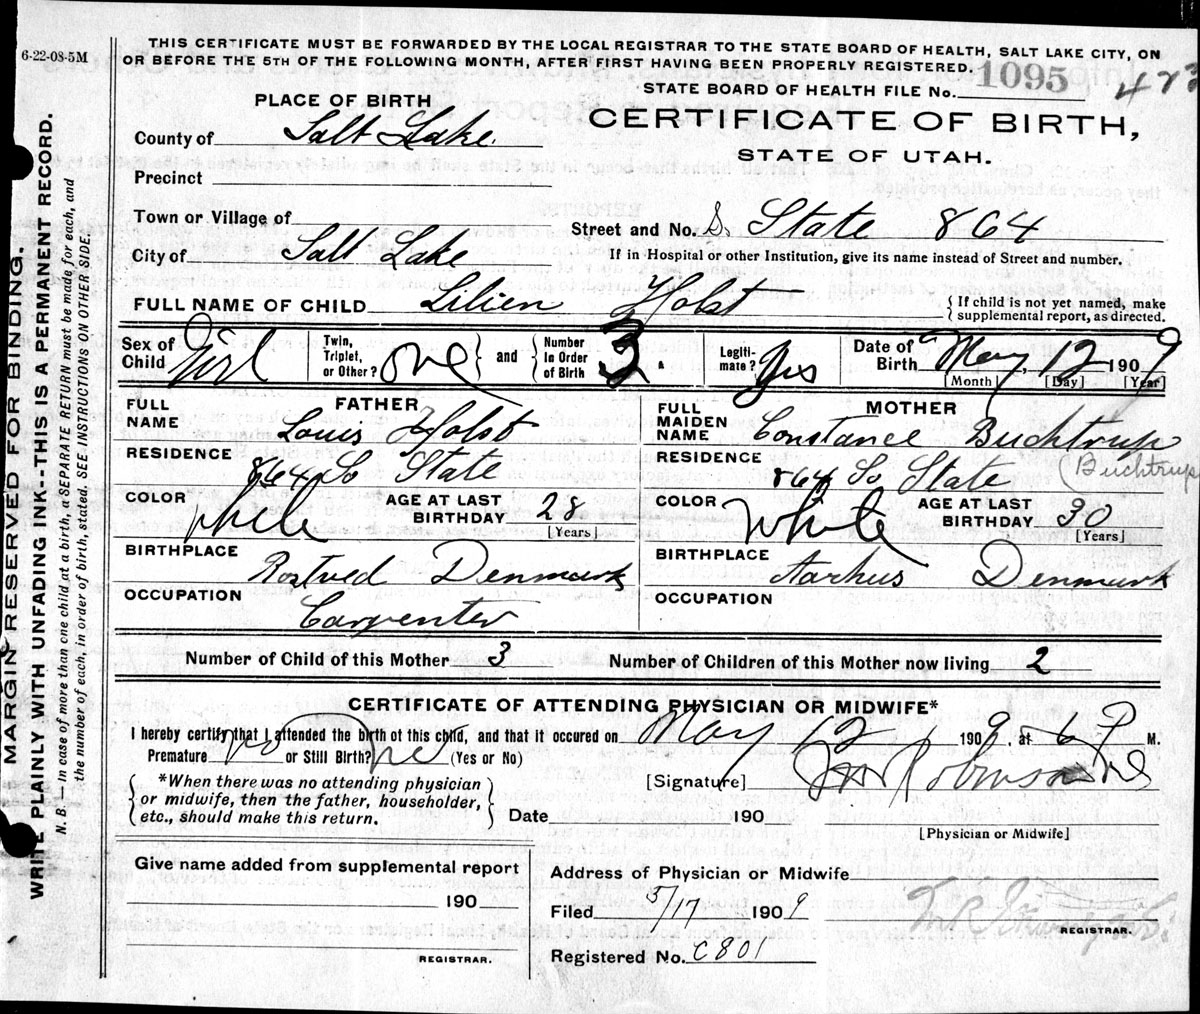 6-22-08-5M
THIS CERTIFICATE MUST BE FORWARDED BY THE LOCAL REGISTRAR TO THE STATE BOARD OF HEALTH, SALT LAKE CITY, ON
OR BEFORE THE 5TH OF THE FOLLOWING MONTH, AFTER FIRST HAVING BEEN PROPERLY REGISTERED.
STATE BOARD OF HEALTH FILE No. 1095 423
PLACE OF BIRTH
CERTIFICATE OF BIRTH,
STATE OF UTAH.
County of Salt Lake.
Precinct
Town or Village of
Street and No. S. State 864
City of Salt Lake
If in Hospital or other Institution, give its name instead of Street and number.
FULL NAME OF CHILD Lilien Holst
{ If child is not yet named, make
supplemental report, as directed.
Sex of Child Girl
Twin, Triplet, or Other? one } and { Number In Order of Birth 3.
Legiti-mate? Yes
Date of Birth May, 12 1909
[Month] [Day] [Year]
FATHER
FULL NAME Louis Holst
RESIDENCE 864 So State
COLOR White
AGE AT LAST BIRTHDAY 28
[Years]
BIRTHPLACE Rostved Denmark
OCCUPATION Carpenter
MOTHER
FULL MAIDEN NAME Constance Buchtrup
(Buchtrup
RESIDENCE 864 So State
COLOR White
AGE AT LAST BIRTHDAY 30
[Years]
BIRTHPLACE Aarhus Denmark
OCCUPATION
Number of Child of this Mother 3
Number of Children of this Mother now living 2
CERTIFICATE OF ATTENDING PHYSICIAN OR MIDWIFE*
I hereby certify that I attended the birth of this child, and that it occured on May 12 1909, at 6 P M.
Premature no or Still Birth? no (Yes or No)
*When there was no attending physician
or midwife, then the father, householder,
etc., should make this return.
[Signature] Robinson
Date 190
[Physician or Midwife]
Give name added from supplemental report
190
REGISTRAR.
Address of Physician or Midwife
Filed 5/17 1909
REGISTRAR.
Registered No. C801
MARGIN RESERVED FOR BINDING.
WRITE PLAINLY WITH UNFADING INK--THIS IS A PERMANENT RECORD.
N. B. — In case of more than one child at a birth, a SEPARATE RETURN must be made for each, and
the number of each, in order of birth, stated. SEE INSTRUCTIONS ON OTHER SIDE.